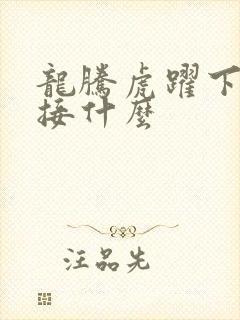 龍騰虎躍下
接什麼
汪品先